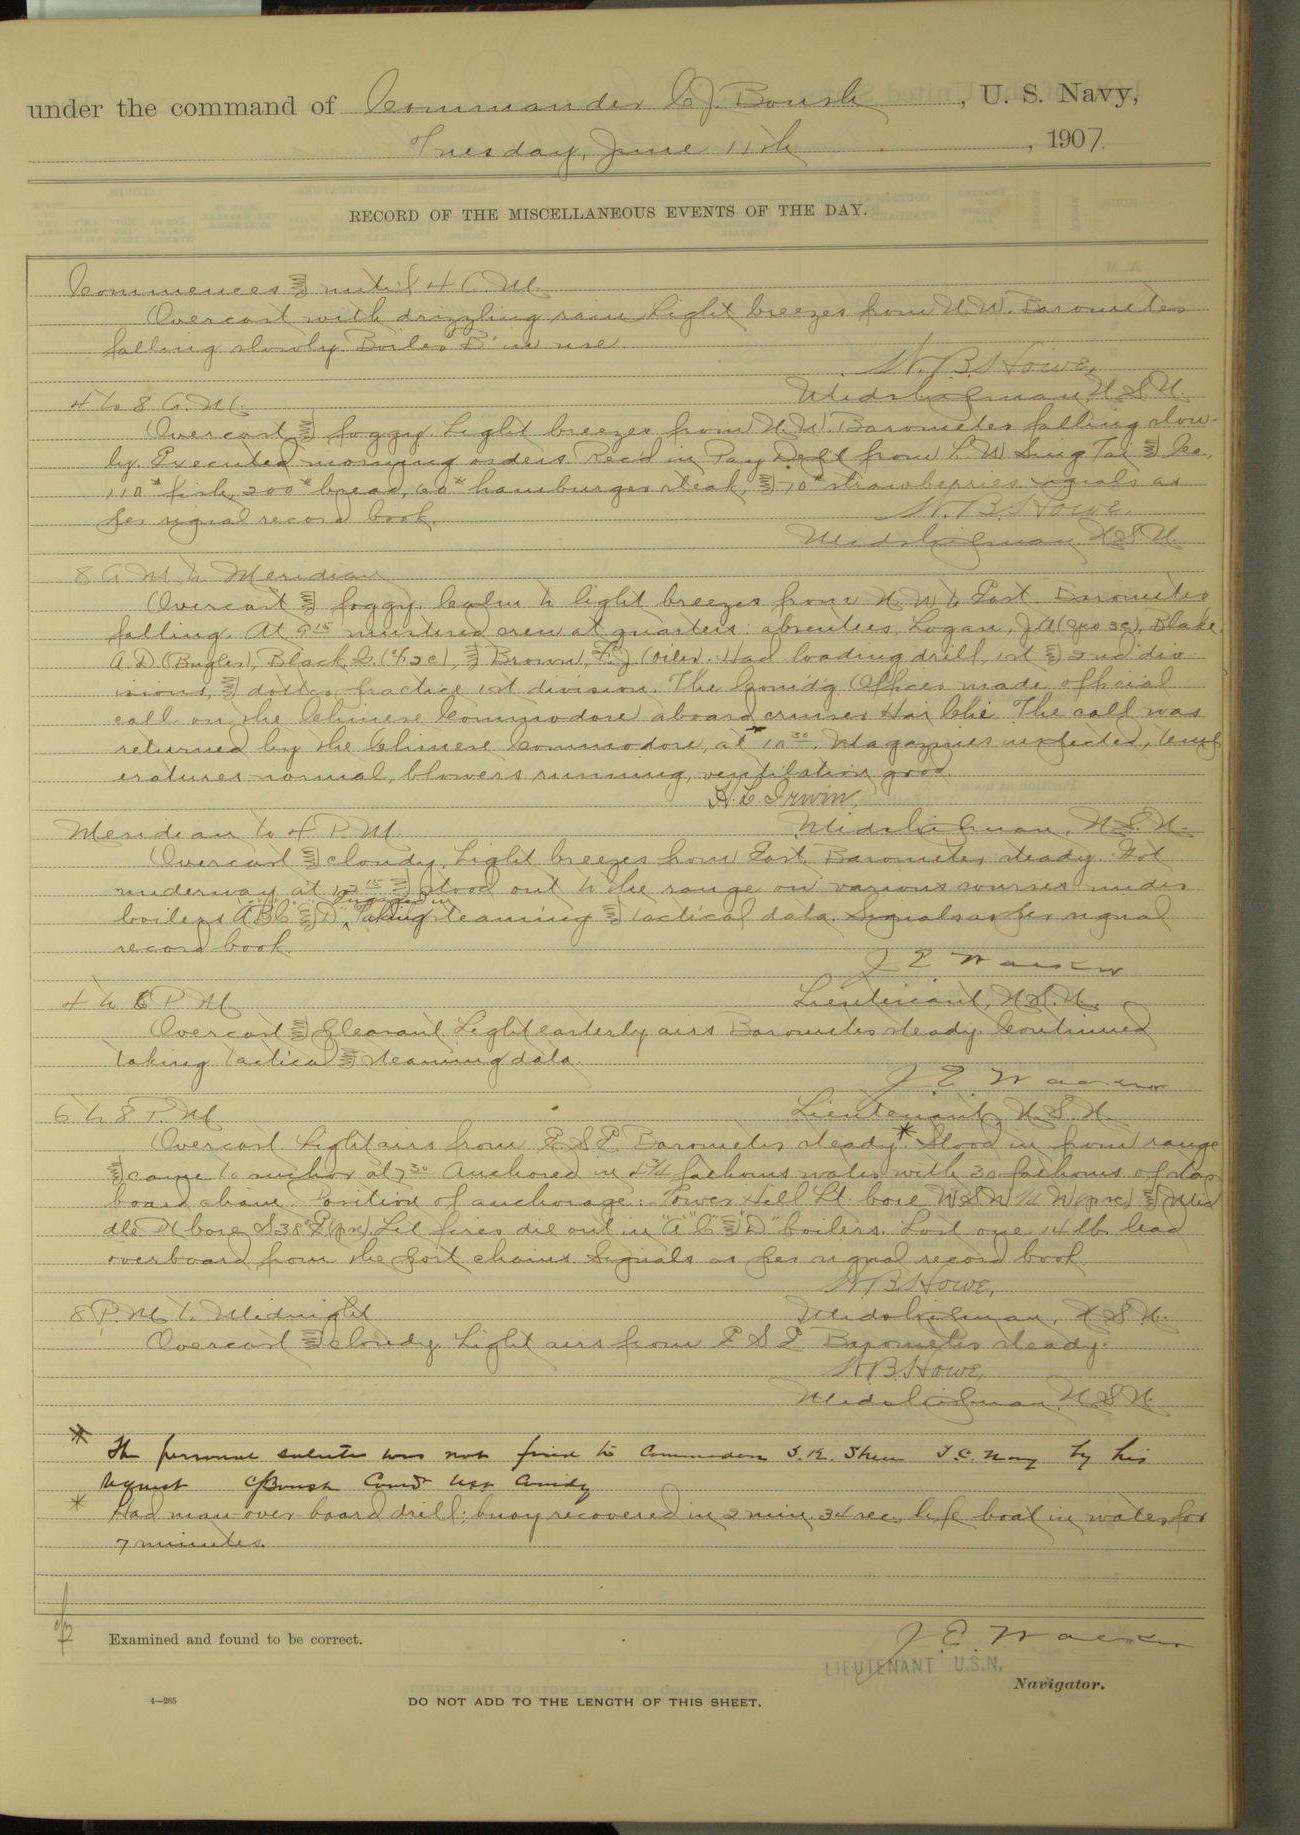 under the command of Commander C.J. Boush, U. S. Navy,
Tuesday, June 11th, 1907.
RECORD OF THE MISCELLANEOUS EVENTS OF THE DAY.
Commences & until 4 A.M.
Overcast with drizzling rain. Light breezes from N.W. Barometer
falling slowly. Boiler "B" in use.
W.B. Howe,
Midshipman, U.S.N.
4 to 8 A.M.
Overcast & foggy. Light breezes from N.W. Barometer falling slow-
ly. Executed morning orders. Rec'd in Pay Dept from L.W Sing Tai & Co.,
110# fish, 200# bread, 60# hamburger steak, & 70# strawberries. Signals as
per signal record book.
W.B. Howe,
Midshipman U.S.N.
8 A.M. to Meridian
Overcast & foggy. Calm to light breezes from N.W. to East. Barometer
falling. At 9 15 mustered crew at quarters: absentees, Logan, J.A. (Yeo 3c), Blake,
A.D. (Bugler), Black, G. (F 2c), & Brown, F.J. (Oiler). Had loading drill, 1st & 2nd div
isions, & dotter practice 1st division. The Comd'g Officer made official
call on the Chinese Commodore aboard cruiser Hai Chi. The call was
returned by the Chinese Commodore, at * 10 30. Magazines inspected, temp
eratures normal, blowers running, ventilation good.
H.L. Irwin,
Midshipman, U.S.N.
Meridian to 4 P.M.
Overcast & cloudy. Light breezes from East. Barometer steady. Got
underway at 12 15 & stood out to the range on various courses under
boilers A B C & D. Engaged in Taking steaming & tactical data. Signals as per signal
record book.
J E Walker
Lieutenant, U.S.N.
4 to 6 P.M.
Overcast & pleasant. Light easterly airs. Barometer steady. Continued
taking tactical & steaming data.
J. E. Walker
Lieutenant, U.S.N.
6 to 8 P.M.
Overcast. Light airs from E.S.E. Barometer steady.* Stood in from range
& came to anchor at 7 30. Anchored in 4 3/4 fathoms water with 30 fathoms of star
board chain. Position of anchorage: Tower Hill Lt. bore WSW 1/4 W (psc) & Mid
dle Id bore S 38° E (psc). Let fires die out in "A" "C" & "D" boilers. Lost one 14 lb. lead
overboard from the port chains. Signals as per signal record book.
W.B. Howe,
Midshipman, U.S.N.
8 P.M. to Midnight
Overcast & cloudy. Light airs from E S E. Barometer steady.
W.B. Howe,
Midshipman, U.S.N.
* The personal salute was not fired to Commodore S.K. Shen I.C. Navy by his
request CJ Boush Comdr USN Comdg
* Had man over board drill; buoy recovered in 2 min. 34 sec., life boat in water for
7 minutes.
Examined and found to be correct.
J. E. Walker
LIEUTENANT U.S.N.
Navigator.
4—265
DO NOT ADD TO THE LENGTH OF THIS SHEET.